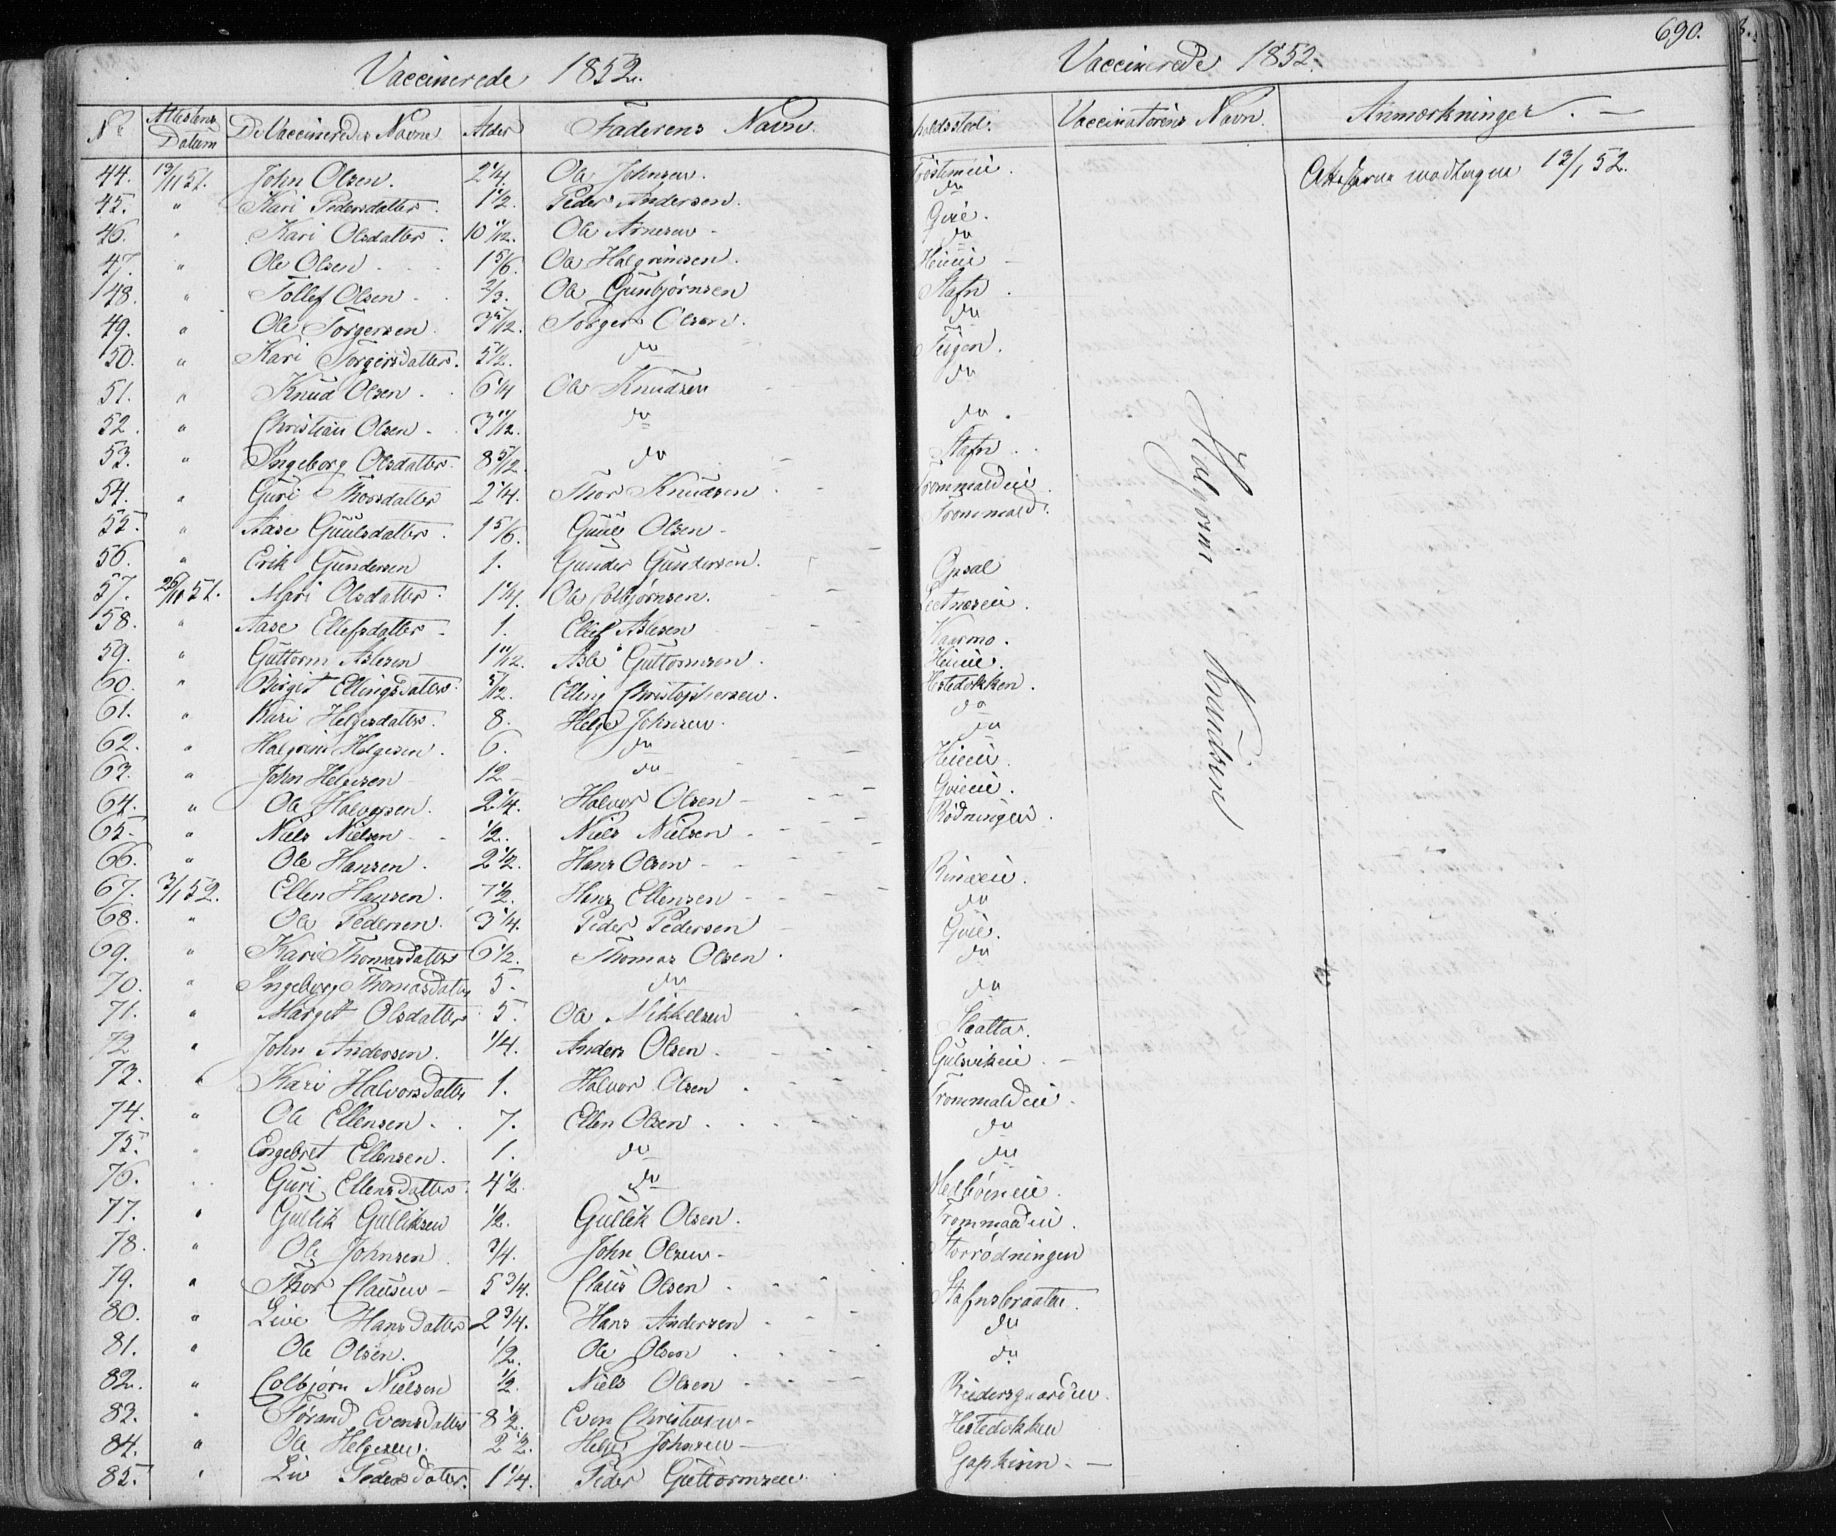 690.
Vaccinerede 1852.
Vaccinerede 1852.
No Attestens Datum De Vaccineredes Navne Alder Faderens Navn. holdssted. Vaccinatørens Navn Anmærkninger. —
44. 13/11 51. John Olsen. 2 1/4. Ole Johnsen.
45. " Kari Pedersdatter. 1 1/2. Peder Andersen.
46. " Kari Olsdatter. 10 11/12. Ole Arnesen -
47. " Ole Olsen 1 5/6. Ole Halgrimsen.
48. " Tollef Olsen 2/3. Ole Gunbjørnsen
49. " Ole Torgersen 3 5/12. Torger Olsen.
50. " Kari Torgersdatter. 5 1/2. do
51. " Knud Olsen 6 1/4 Ole Knudsen
52. " Christian Olsen 3 11/12. do
53. " Ingeborg Olsdatter. 8 5/12. do
54. " Guri Thorsdatter 2 1/4. Thor Knudsen
55. " Aase Guulsdatter. 1 5/6. Guul Olsen -
56. " Erik Gundersen 1. Gunder Gundersen.
57. 26/11 51. Mari Olsdatter. 1 1/4. Ole Colbjørnsen.
58. " Aase Ellefsdatter 1. Ellef Aslesen
59. " Guttorm Aslesen 1 11/12. Asle Guttormsen.
60. " Birgit Ellingsdatter. 5/12. Elling Christophersen.
61. " Kari Helgesdatter. 8. Helge Johnsen.
62. " Halgrim Helgesen. 6. do
63. " John Helgesen 12 - do
64. " Ole Halvorsen. 2 1/4. Halvor Olsen -
65. " Niels Nielsen 1/2. Niels Nielsen
66. " Ole Hansen. 2 1/2. Hans Olsen -
67. 3/1 52. Ellen Hansen. 7 1/2. Hans Ellensen
68. " Ole Pedersen. 3 1/4. Peder Pedersen
69. " Kari Thomasdatter 6 1/2. Thomas Olsen
70. " Ingeborg Thomasdatter 5. do
71. " Margit Olsdatter 5. Ole Mikkelsen
72 " John Andersen. 1/4. Anders Olsen.
73. " Kari Halvorsdatter 1. Halvor Olsen
74. " Ole Ellensen. 7. Ellen Olsen
75. Engebret Ellensen. 1. do
76. Guri Ellensdatter. 4 1/2. do
77. " Gullik Gulliksen 1/2. Gullik Olsen.
78. " Ole Johnsen 3/4. John Olsen -
79. " Thor Clausen - 5 3/4. Claus Olsen
80. " Live Hansdatter 2 3/4. Hans Andersen
81. " Ole Olsen. 1/2. Ole Olsen
82. " Colbjørn Nielsen 1/2. Niels Olsen
83. " Tørand Evensdatter 8 1/2. Even Christensen -
84. " Ole Helgesen. 2 1/2. Helge Johnsen -
85. " Liv Pedersdatter. 1 1/4. Peder Guttormsen
Attesterne modtagne 13/1 52.
do
do
Stafn
do
Teigen.
do
do
Stafn
Trommaldeie
Trommald
Opsal
Kaarmo.
Heieie.
Hestedokken.
do
do
Heieie.
Gvieie.
Rødningen
do
do
do
Gulsvikeie
Trommaldeie.
do
do
Storrødningen
Stafnsbraaten.
do
do
Hestedokken
Halgrim Knudsen